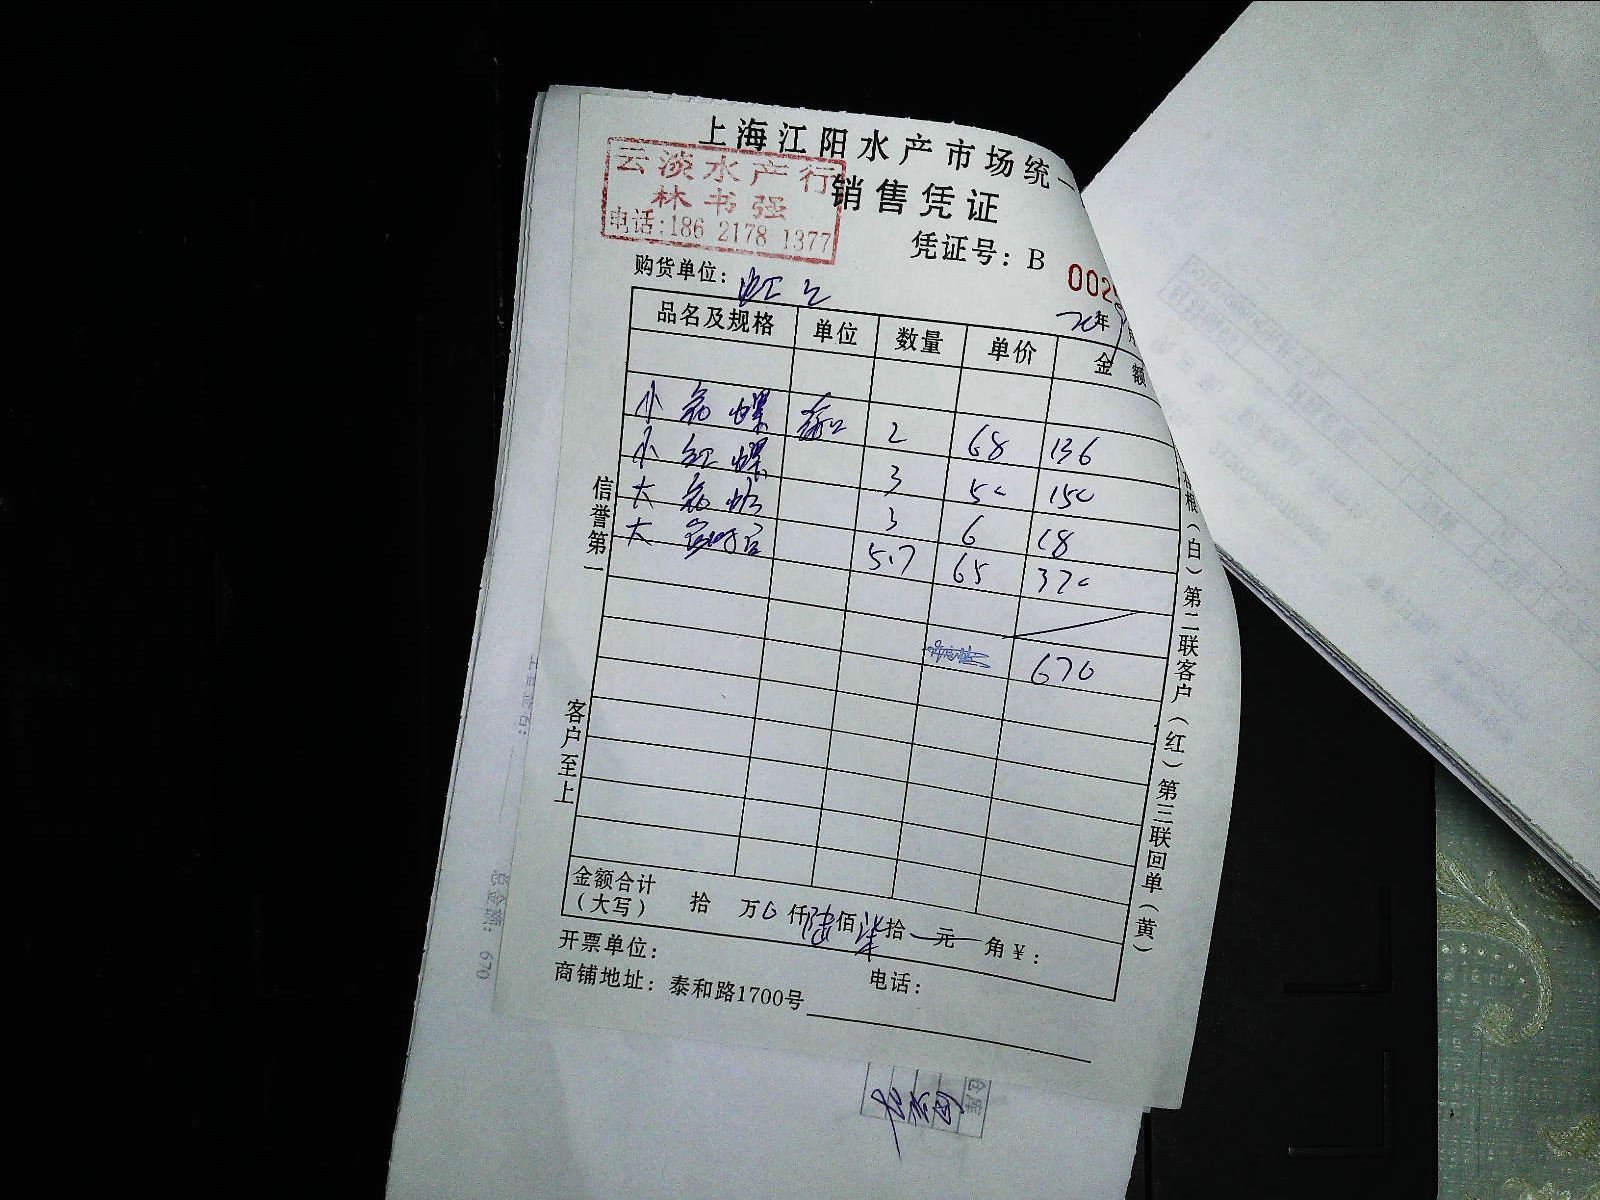 上海江阳水产市场统一
销售凭证
云淡水产行
林书强
电话:186 2178 1377
凭证号：B 002
购货单位：
年
品名及规格 单位 数量 单价 金额
小 螺 2 68 136
小红螺 3 50 150
大 3 6 18
大 5.7 65 370
670
信誉第一
客户至上
根（白）第二联客户（红）第三联回单（黄）
金额合计
（大写） 拾 万0仟陆佰柒拾 元 角￥：
开票单位：
电话：
商铺地址：泰和路1700号
总金额：670
仓库